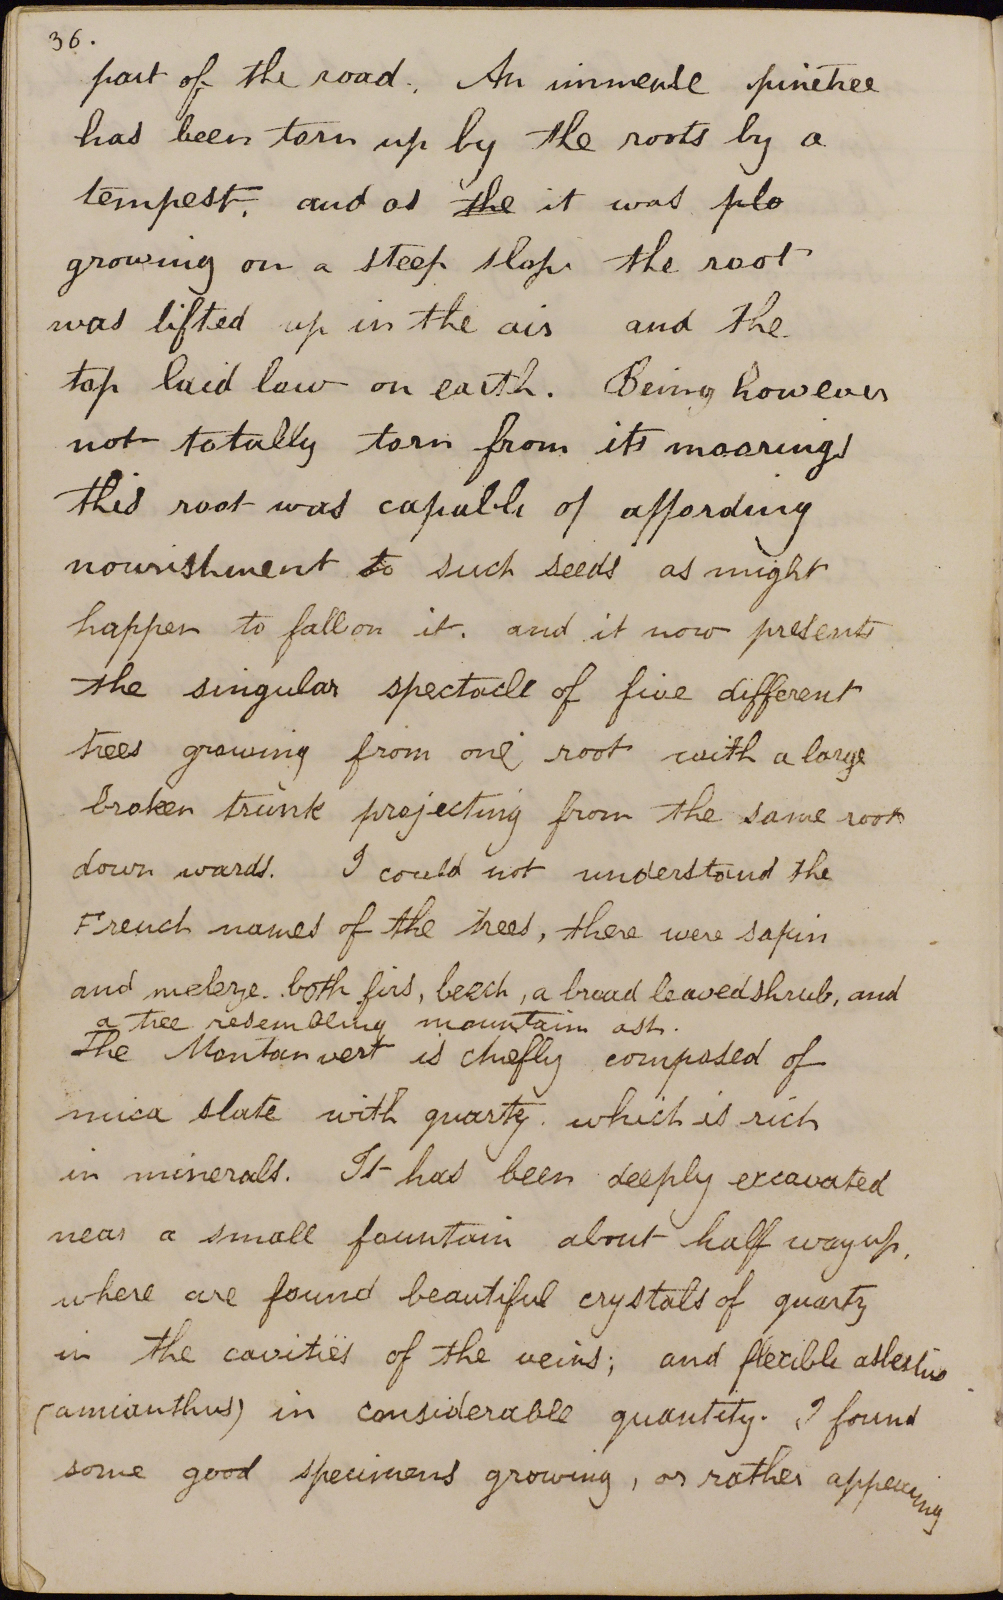 36.
part of the road. An immense pinetree
has been torn up by the roots by a
tempest, and as the it was plo
growing on a steep slope the root
was lifted up in the air and the
top laid low on earth. Being however
not totally torn from its moorings
this root was capable of affording
nourishment to such seeds as might
happen to fall on it. and it now presents
the singular spectacle of five different
trees growing from one root with a large
broken trunk projecting from the same root
down wards. I could not understand the
French names of the trees, there were sapin
and meleze. both firs, beech, a broad leaved shrub, and
a tree resembling mountain ash.
The Montanvert is chiefly composed of
mica slate with quartz. which is rich
in minerals. It has been deeply excavated
near a small fountain about half way up,
where are found beautiful crystals of quartz
in the cavities of the veins; and flexible asbestus
(amianthus) in considerable quantity. I found
some good specimens growing, or rather appearing